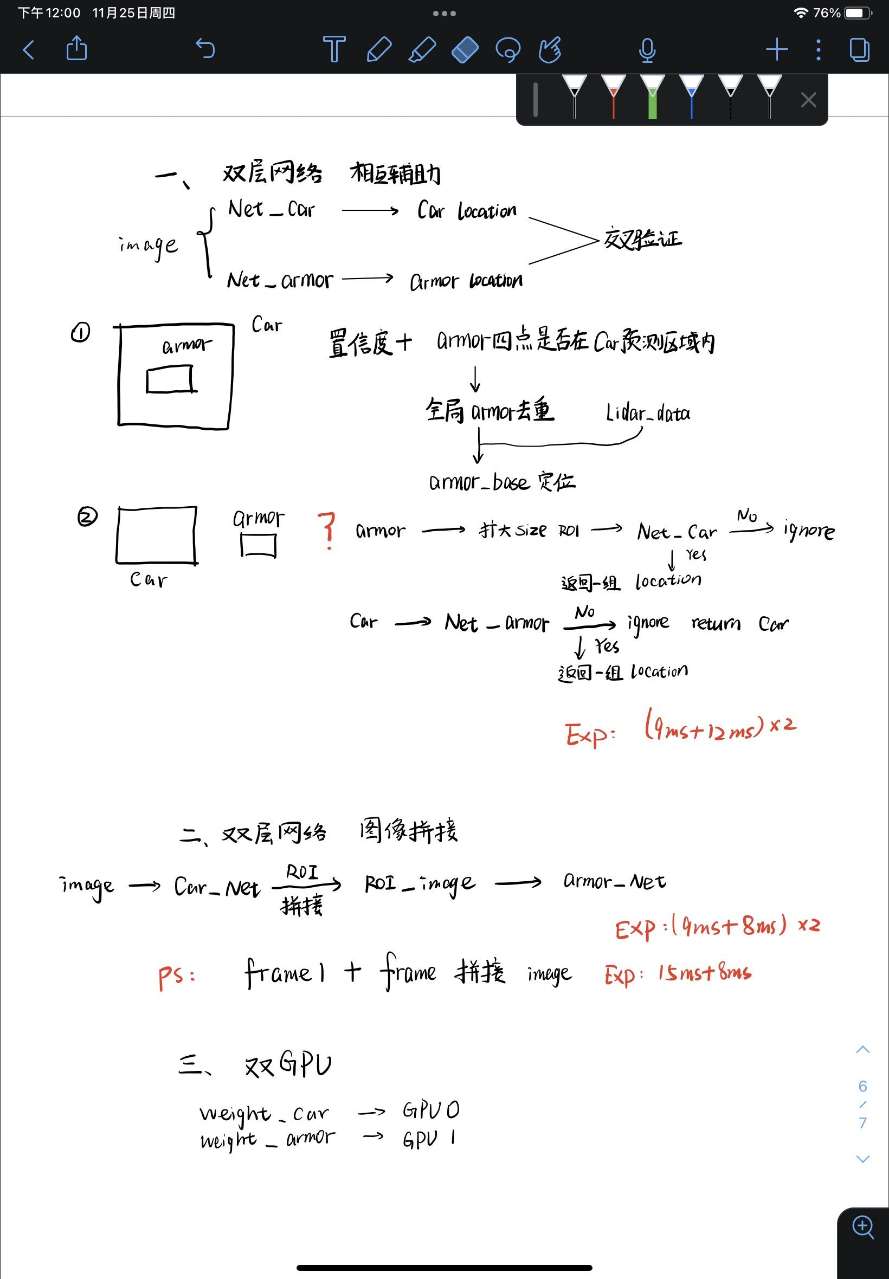 下午12:00 11月25日周四
76%
T
一、 双层网络 相互辅助
Net_Car → Car location
image
交叉验证
Net_armor → armor location
① Car
armor
置信度+ armor四点是否在Car预测区域内
全局armor去重 Lidar_data
armor_base 定位
② armor
Car
? armor → 扩大size ROI → Net_Car No → ignore
↓ Yes
返回一组 location
Car → Net_armor No → ignore return Car
↓ Yes
返回一组 location
Exp: (9ms+12ms)×2
二、双层网络 图像拼接
image → Car_Net ROI 拼接 → ROI_image → armor_Net
Exp:(9ms+8ms)×2
PS: frame1 + frame 拼接 image Exp: 15ms+8ms
三、 双GPU
weight_car → GPU 0
weight_armor → GPU 1
6
/
7